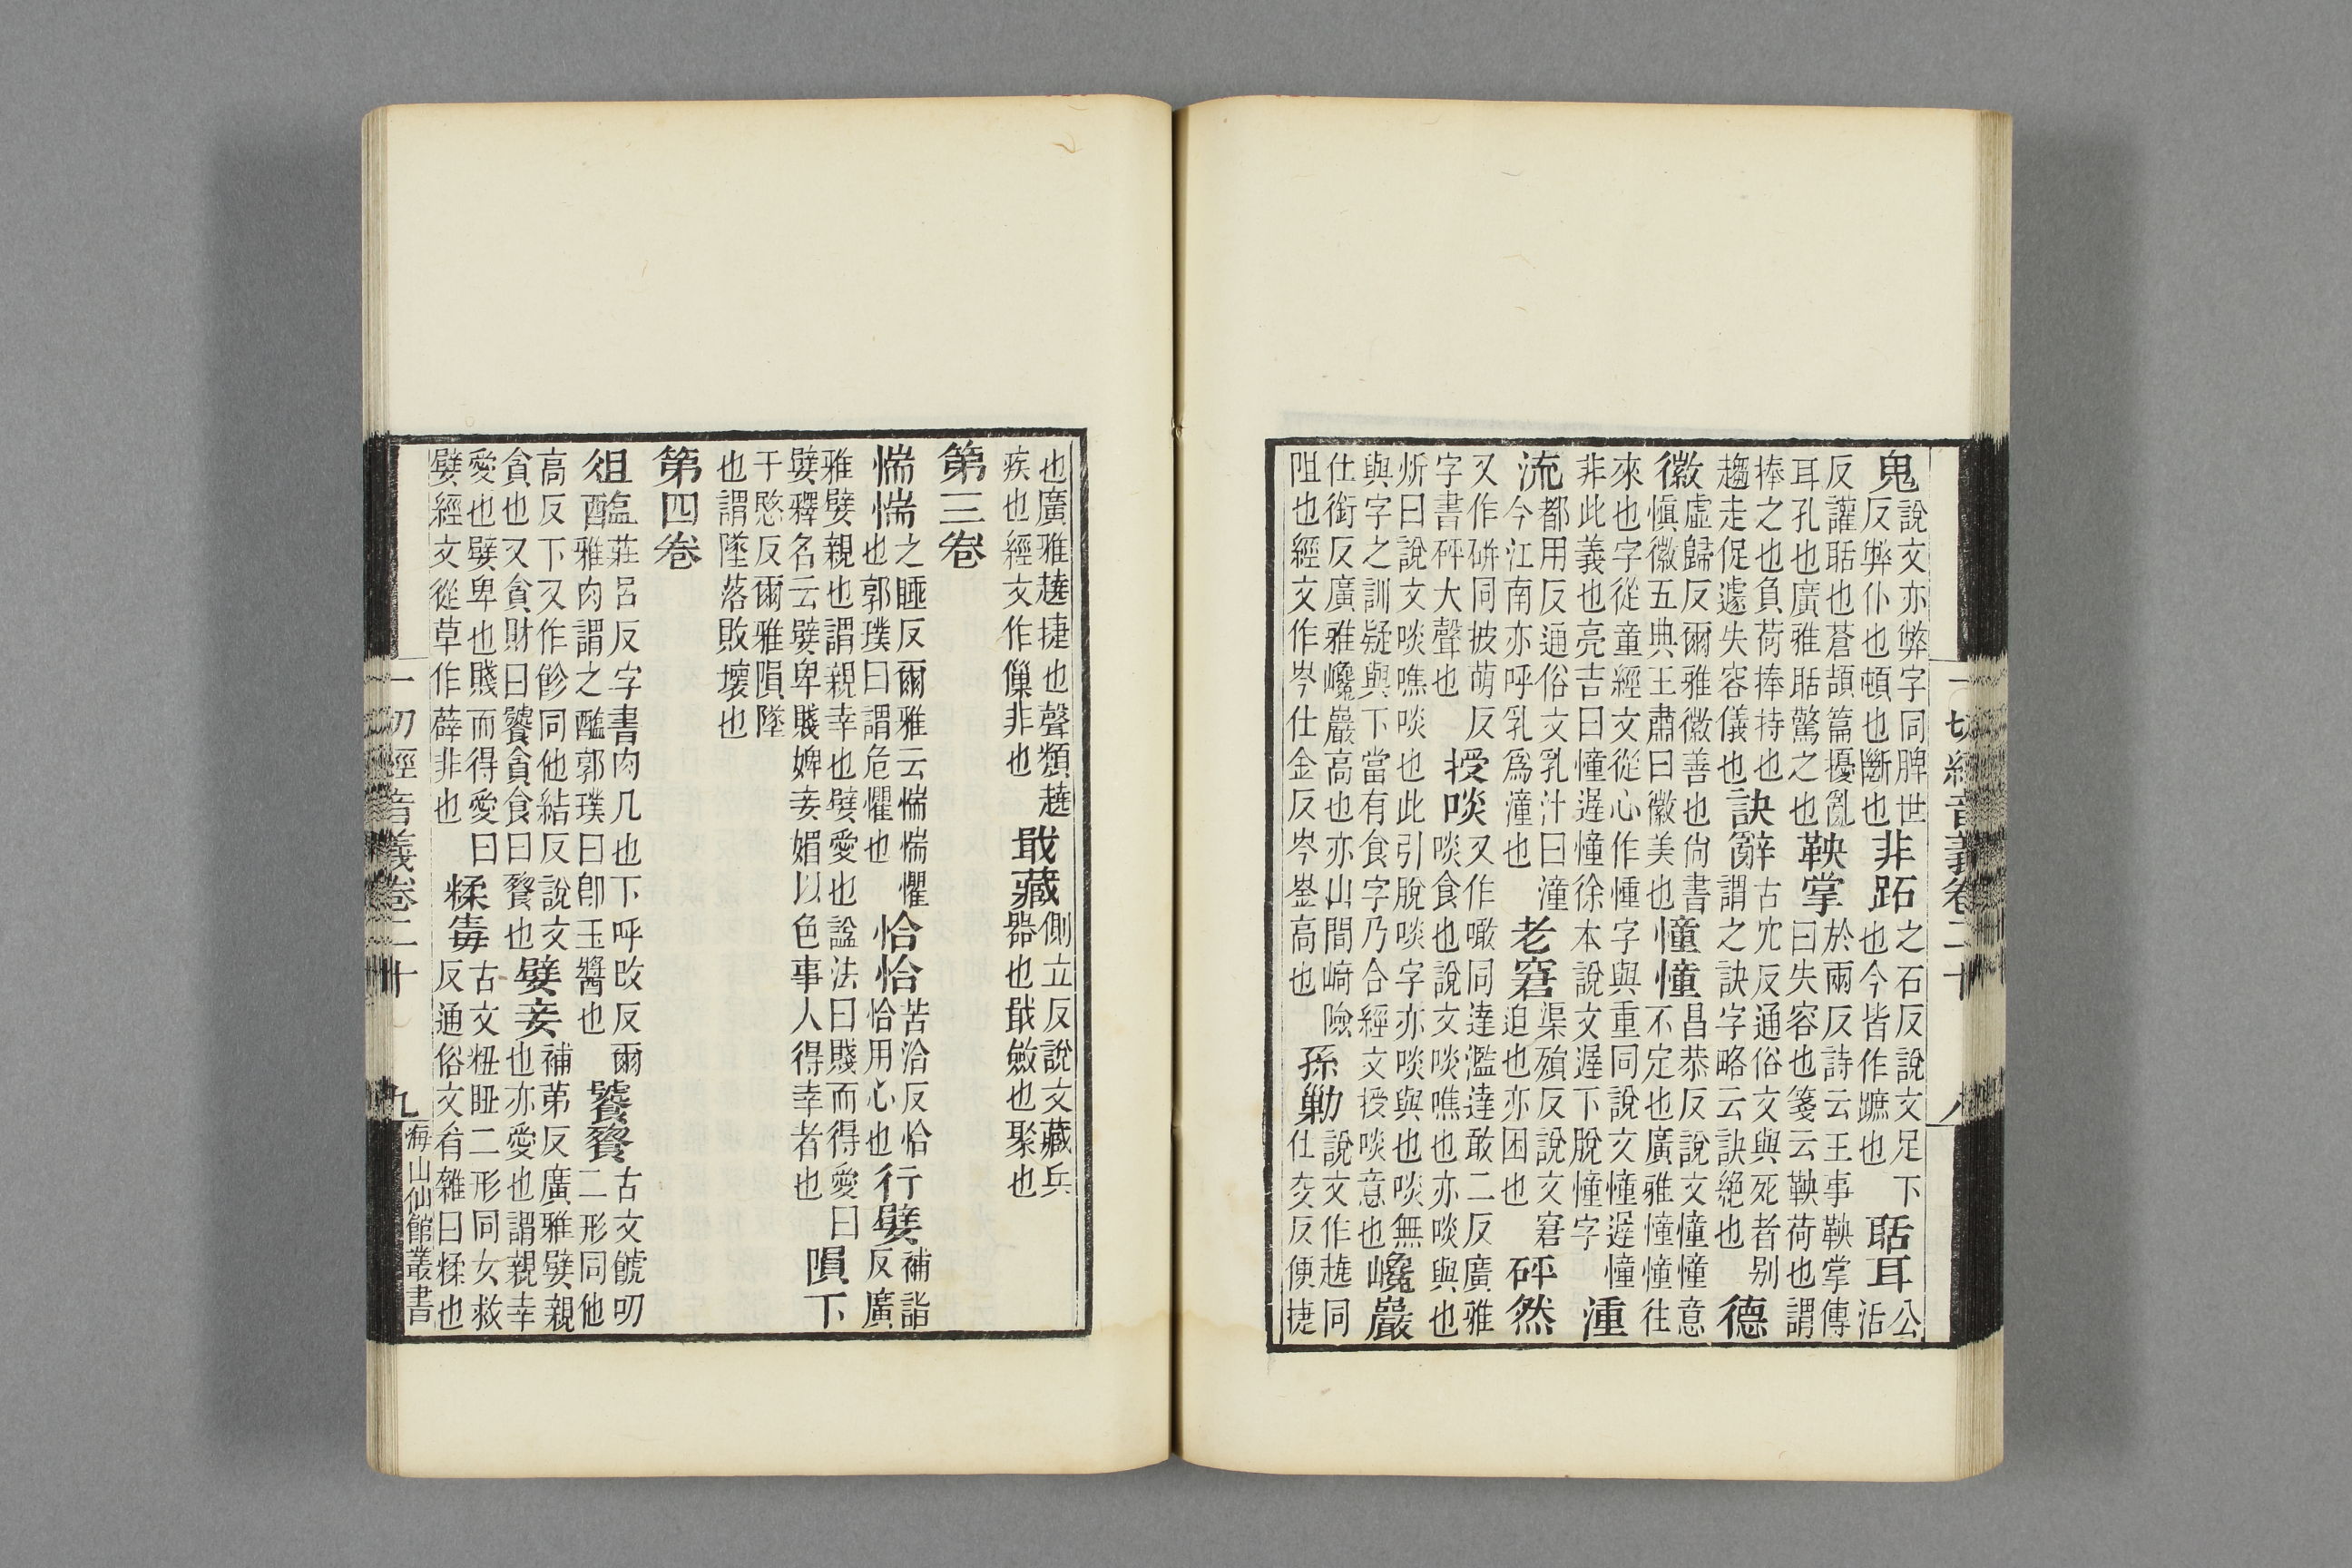 一切經音義卷二十 八
鬼說文亦弊字同脾世反弊仆也頓也斷也非跖之石反說文足下也今皆作蹠也聒耳公活
反讙聒也蒼頡篇擾亂耳孔也廣雅聒驚之也鞅掌於兩反詩云王事鞅掌傳曰失容也箋云鞅荷也謂
捧之也負荷捧持也趨走促遽失容儀也訣辭古穴反通俗文與死者别謂之訣字略云訣絕也德
徽虛歸反爾雅徽善也尙書愼徽五典王肅曰徽美也憧憧昌恭反說文憧憧意不定也廣雅憧憧往
來也字從童經文從心作㣫字與重同說文憧遟憧非此義也亮吉曰憧遟憧徐本說文遟下脫憧字湩
流都用反通俗文乳汁曰湩今江南亦呼乳爲湩也老窘渠殞反說文窘迫也亦困也砰然
又作硑同披萌反字書砰大聲也授啖又作噉同達濫達敢二反廣雅啖食也說文啖噍也亦啖與也
炘曰說文啖噍啖也此引脫啖字亦啖與也啖無與字之訓疑與下當有食字乃合經文授啖意也巉巖
仕銜反廣雅巉巖高也亦山間崎嶮阻也經文作岑仕金反岑崟高也孫勦說文作趬同仕交反便捷
也廣雅趬捷也聲類趬疾也經文作非也戢藏側立反說文藏兵器也戢斂也聚也
第三卷
惴惴之睡反爾雅云惴惴懼也郭璞曰謂危懼也恰恰苦洽反恰恰用心也行嬖補詣反廣
雅嬖親也謂親幸也嬖愛也諡法曰賤而得愛曰嬖釋名云嬖卑賤婢妾媚以色事人得幸者也隕下
于愍反爾雅隕墜也謂墜落敗壞也
第四卷
俎醢莊呂反字書肉几也下呼改反爾雅肉謂之醢郭璞曰卽玉醬也饕餮古文號叨二形同他
高反下又作飻同他結反說文貪也又貪財曰饕貪食曰餮也嬖妾補第反廣雅嬖親也亦愛也謂親幸
愛也嬖卑也賤而得愛曰嬖經文從草作薜非也糅毒古文粈䏔二形同女救反通俗文肴雜曰糅也
一切經音義卷二十 九 海山仙館叢書